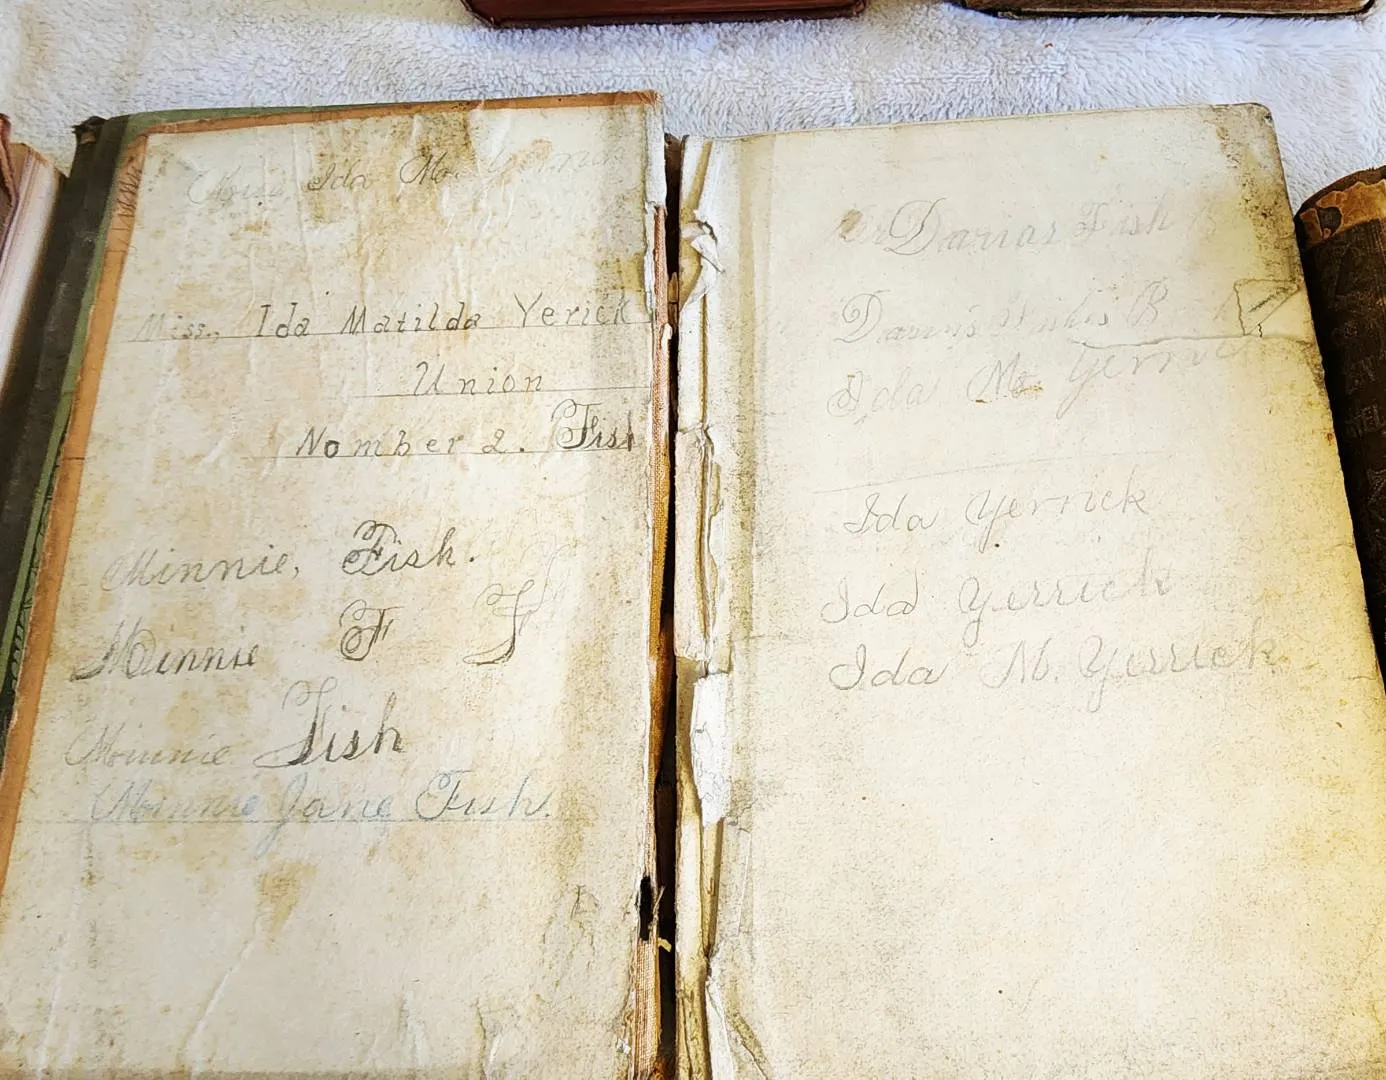 Miss Ida M.
Miss, Ida Matilda Yerick
Union
Nomber 2. Fish
Minnie, Fish.
Minnie F F
Minnie Fish
Minnie Jane Fish.
Darias Fish
Ida M. Yerrick
Ida Yerrick
Ida Yerrick
Ida M. Yerrick